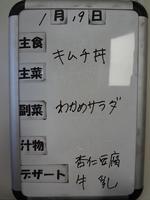 1月19日
主食
キムチ丼
主菜
副菜 わかめサラダ
汁物
デザート 杏仁豆腐
牛乳